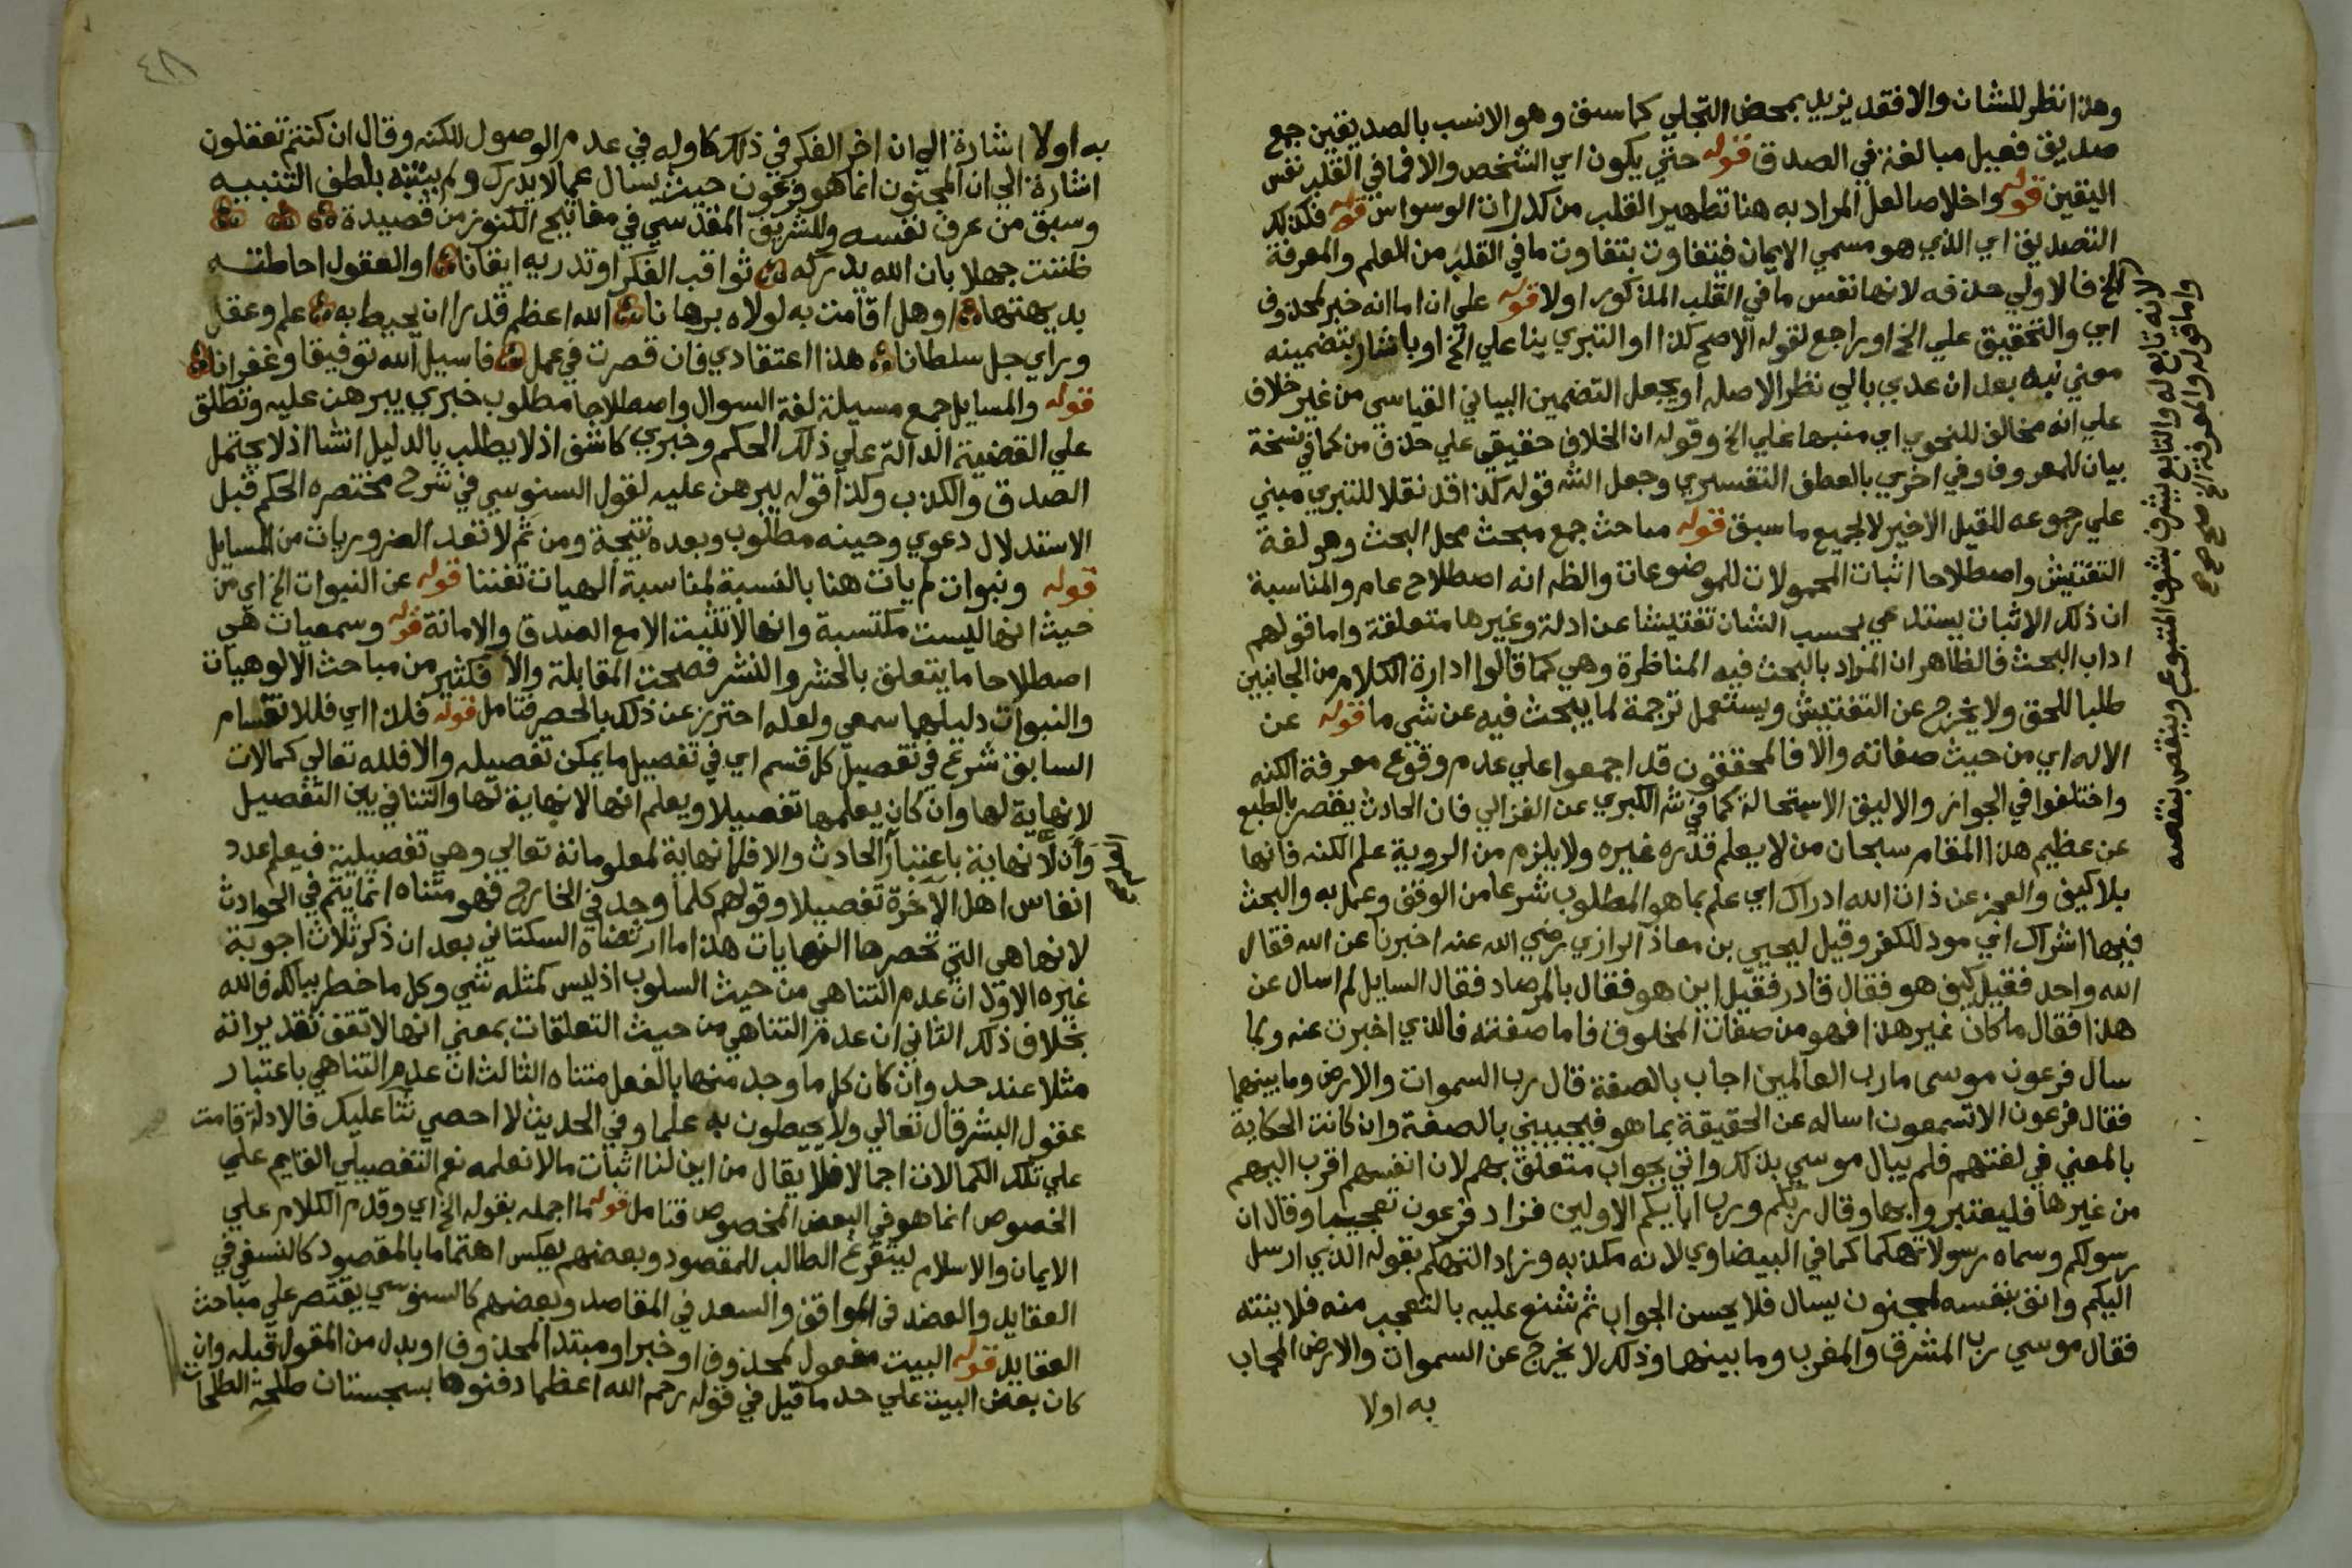 وهذا نظر للشان والا فقد يزيد بمحض التجلي كما سبق وهو الانسب بالصديقين جمع
صديق فعيل مبالغة في الصدق قوله حتي يكون اي الشخص والا فما في القلب نفس
اليقين قوله واخلاصا لعل المراد به هنا تطهير القلب من كدرات الوسواس قوله فكذلك
التصديق اي الذي هو مسمي الايمان فيتفاوت بتفاوت ما في القلب من العلم والمعرفة
الخ فالاولي حذفه لانها نفس ما في القلب المذكور اولا قوله علي ان اما انه خبر لمحذوف
اي والتحقيق علي الخ او راجع لقوله الاصح كذا او التبري بنا علي الخ او باشار بتضمينه
معني نبه بعد ان عدي بالي نظر الاصله او يجعل التضمين البياني القياسي من غير خلاف
علي انه مخالف للنحوي اي منبها علي الخ وقوله ان الخلاف حقيقي علي حذف من كما في نسخة
بيان للمعروف وفي اخري بالعطف التفسيري وجعل الشه قوله كذا قد نقلا للتبري مبني
علي رجوعه للقيل الاخير لا لجميع ما سبق قوله مباحث جمع مبحث محل البحث وهو لغة
التفتيش واصطلاحا اثبات المحمولات للموضوعات والظه انه اصطلاح عام والمناسبة
ان ذلك الاثبات يستدعي بحسب الشان تفتيشا عن ادلة وغيرها متعلقة واما قولهم
اداب البحث فالظاهر ان المراد بالبحث فيه المناظرة وهي كما قالوا ادارة الكلام من الجانبين
طلبا للحق ولا يخرج عن التفتيش ويستعمل ترجمة لما يبحث فيه عن شي ما قوله عن
الاله اي من حيث صفاته والا فالمحققون قد اجمعوا علي عدم وقوع معرفة الكنه
واختلفوا في الجواز والاليق الاستحالة كما في شه الكبري عن الغزالي فان الحادث يقصر بالطبع
عن عظيم هذا المقام سبحان من لا يعلم قدره غيره ولا يلزم من الروية علم الكنه فانها
بلا كيف والعجز عن ذات الله ادراك اي علم بما هو المطلوب شرعا من الوقف وعمل به والبحث
فيها اشراك اي مود للكفر وقيل ليحيي بن معاذ الرازي رضي الله عنه اخبرنا عن الله فقال
الله واحد فقيل كيف هو فقال قادر فقيل اين هو فقال بالمرصاد فقال السايل لم اسال عن
هذا فقال ما كان غير هذا فهو من صفات المخلوق فاما صفته فالذي اخبرت عنه ولما
سال فرعون موسي ما رب العالمين اجاب بالصفة قال رب السموات والارض وما بينهما
فقال فرعون الا تسمعون اساله عن الحقيقة بما هو فيجيبني بالصفة وان كانت الحكاية
بالمعني في لغتهم فلم يبال موسي بذلك واتي بجواب متعلق بهم لان انفسهم اقرب اليهم
من غيرها فليعتبروا بها وقال ربكم ورب ابايكم الاولين فزاد فرعون تعجيبا وقال ان
رسولكم وسماه رسولا تهكما كما في البيضاوي لانه مكذبه وزاد التهكم بقوله الذي ارسل
اليكم وانف بنفسه لمجنون يسال فلا يحسن الجواب ثم شنع عليه بالتعجب منه فلا ينته
فقال موسي رب المشرق والمغرب وما بينهما وذلك لا يخرج عن السموات والارض المجاب
به اولا
لانه تابع له والتابع يشرف بشرف المتبوع وينقص بنقصه
واما قوله والمعرفة الخ صح صح صح
٤٨
به اولا اشارة الي ان اخر الفكر في ذلك كاوله في عدم الوصول للكنه وقال ان كنتم تعقلون
اشارة الي ان المجنون انما هو فرعون حيث يسال عما لا يدرك ولم ينتبه بلطف التنبيه
وسبق من عرف نفسه وللشريف المقدسي في مفاتيح الكنوز من قصيدة
ظننت جهلا بان الله يدركه ثواقب الفكر او تدريه ايقانا او العقول احاطته
بديهتها او هل اقامت به لولاه برهانا الله اعظم قدرا ان يحيط به علم وعقل
وراي جل سلطانا هذا اعتقادي فان قصرت في عمل فاسيل الله توفيقا وغفرانا
قوله والمسايل جمع مسيلة لغة السوال واصطلاحا مطلوب خبري يبرهن عليه وتطلق
علي القضية الدالة علي ذلك الحكم وخبري كاشف اذ لا يطلب بالدليل انشا اذ لا يحتمل
الصدق والكذب وكذا قوله يبرهن عليه لقول السنوسي في شرح مختصره الحكم قبل
الاستدلال دعوي وحينه مطلوب وبعده نتيجة ومن ثم لا تعد الضروريات من المسايل
قوله ونبوات لم يات هنا بالنسبة لمناسبة الهيات تفننا قوله عن النبوات الخ اي من
حيث انها ليست مكتسبة وانها لا تثبت الا مع الصدق والامانة قوله وسمعيات هي
اصطلاحا ما يتعلق بالحشر والنشر فصحت المقابلة والا فكثير من مباحث الالوهيات
والنبوات دليلها سمعي ولعله احترز عن ذلك بالحصر فتامل قوله فلذا اي فللانقسام
السابق شرع في تفصيل كل قسم اي في تفصيل ما يمكن تفصيله والا فلله تعالي كمالات
لا نهاية لها وان كان يعلمها تفصيلا ويعلم انها لا نهاية لها والتنافي بين التفصيل
وان لا نهاية باعتبار الحادث والا فلا نهاية لمعلوماته تعالي وهي تفصيلية فيعلم عدد
انفاس اهل الاخرة تفصيلا وقولهم كلما وجد في الخارج فهو متناه انما يتم في الحوادث
لانها هي التي تحصرها النهايات هذا ما ارتضاه السكتاني بعد ان ذكر ثلاث اجوبة
غيره الاول ان عدم التناهي من حيث السلوب اذ ليس كمثله شي وكل ما خطر ببالك فالله
بخلاف ذلك الثاني ان عدم التناهي من حيث التعلقات بمعني انها لا تقف تقديراته
مثلا عند حد وان كان كل ما وجد منها بالفعل متناه الثالث ان عدم التناهي باعتبار
عقول البشر قال تعالي ولا يحيطون به علما وفي الحديث لا احصي ثنا عليك فالادلة قامت
علي تلك الكمالات اجمالا فلا يقال من اين لنا اثبات ما لا نعلمه نعم التفصيلي القايم علي
الخصوص انما هو في البعض المخصوص فتامل قوله ما اجمله بقوله الخ اي وقدم الكلام علي
الايمان والاسلام ليتفرغ الطالب للمقصود وبعضهم يعكس اهتماما بالمقصود كالنسفي في
العقايد والعضد في المواقف والسعد في المقاصد وبعضهم كالسنوسي يقتصر علي مباحث
العقايد قوله البيت مفعول لمحذوف او خبر او مبتدا لمحذوف او بدل من المقول قبله وان
كان بعض البيت علي حد ما قيل في قوله رحم الله اعظما دفنوها بسجستان طلحة الطلحات